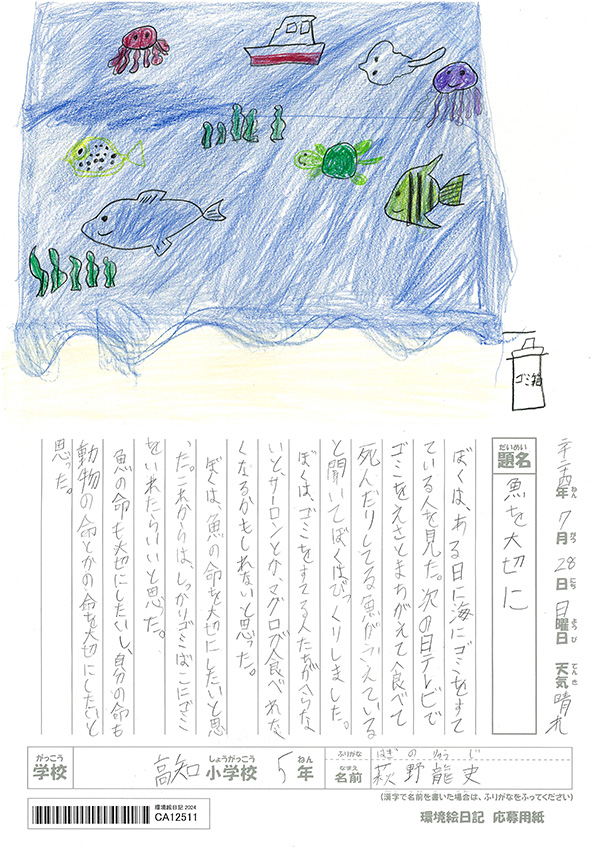 ゴミ箱
年 7月 28日 日曜日 天気 晴れ
ねん がつ にち ようび てんき
だいめい
題名 魚を大切に
ぼくは、ある日に海にゴミをすて
ている人を見た。次の日テレビで
ゴミをえさとまちがえて食べて
死んだりしてる魚がふえている
と聞いてぼくはびっくりしました。
ぼくは、ゴミをすてる人たちがへらな
いと、サーロンとか、マグロが食べれな
くなるかもしれないと思った。
ぼくは、魚の命を大切にしたいと思
った。これからは、しっかりゴミばこにゴミ
をいれたらいいと思った。
魚の命も大切にしたいし、自分の命も
動物の命とかの命を大切にしたいと
思った。
がっこう しょうがっこう ねん
学校 高知 小学校 5年
ふりがな はぎ の りゅう じ
なまえ
名前 萩野龍史
(漢字で名前を書いた場合は、ふりがなをふってください)
環境絵日記 2024
CA12511
環境絵日記 応募用紙